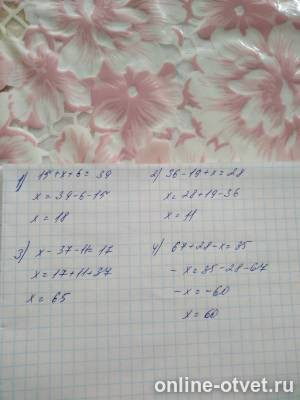 1) 15+x+6=39
x=39-6-15
x=18
2) 36-19+x=28
x=28+19-36
x=11
3) x-37-11=17
x=17+11+37
x=65
4) 67+28-x=35
-x=35-28-67
-x=-60
x=60
online-otvet.ru